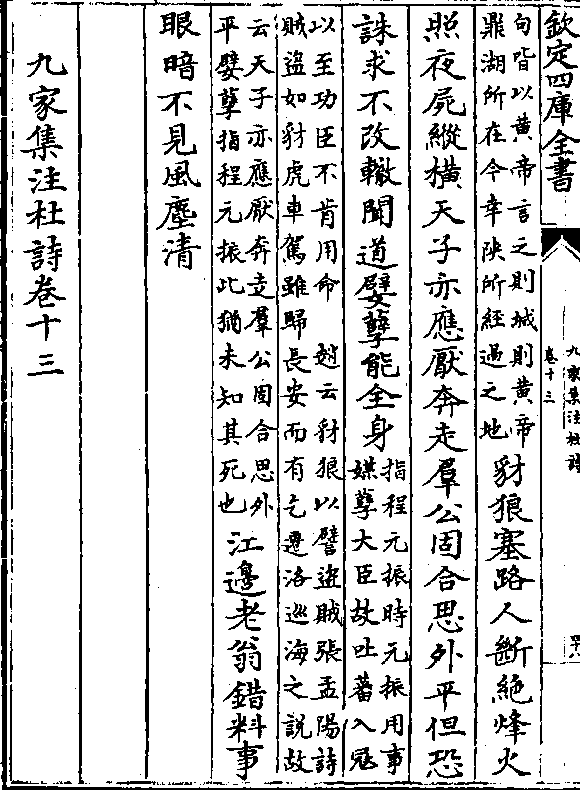 欽定四庫全書
九家集注杜詩
卷十三
句皆以黄帝言之則城則黄帝
鼎湖所在今幸陜所經過之地
豺狼塞路人斷絶烽火
照夜屍縱横天子亦應厭奔走羣公固合思外平但恐
誅求不改轍聞道嬖孽能全身
指程元振時元振用事
媒孽大臣故吐蕃入寇
以至功臣不肯用命　趙云豺狼以譬盜賊張孟陽詩
賊盜如豺虎車駕雖歸長安而有乞遷洛巡海之說故
云天子亦應厭奔走羣公固合思外
平嬖孽指程元振此猶未知其死也
江邊老翁錯料事
眼暗不見風塵清
九家集注杜詩卷十三